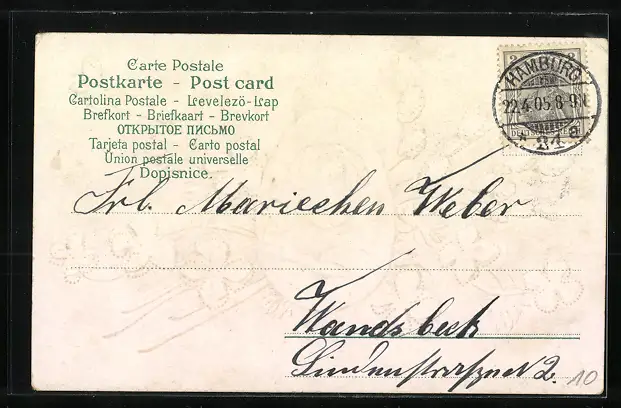 Carte Postale
Postkarte - Post card
Cartolina Postale - Levelező-Lap
Brefkort - Briefkaart - Brevkort
ОТКРЫТОЕ ПИСЬМО
Tarjeta postal - Carto postal
Union postale universelle
Dopisnice.
HAMBURG
22.4.05.8-9N
Frl. Mariechen Weber
Wandsbeck
Lindenstrasse N 2.
10